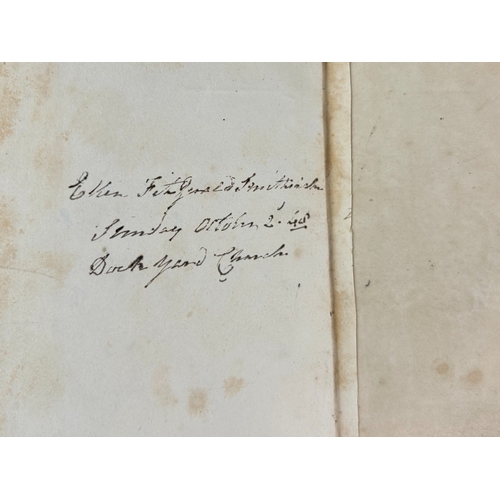 Ellen FitzGerald
Sunday October 2d 48
Dock Yard Church